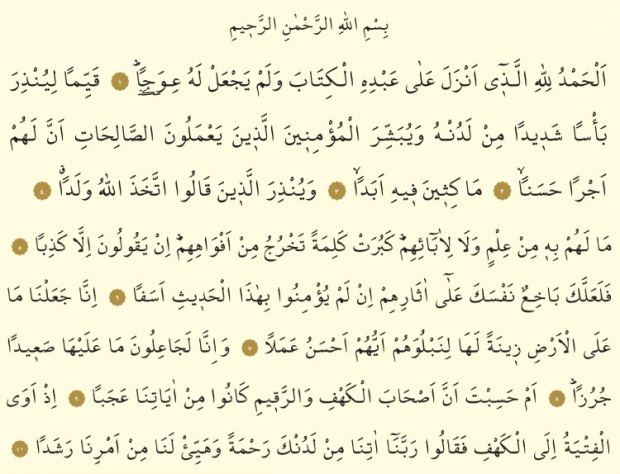 بِسْمِ اللّٰهِ الرَّحْمٰنِ الرَّح۪يمِ
اَلْحَمْدُ لِلّٰهِ الَّذ۪ٓي اَنْزَلَ عَلٰى عَبْدِهِ الْكِتَابَ وَلَمْ يَجْعَلْ لَهُ عِوَجًاۜ ﴿١﴾ قَيِّمًا لِيُنْذِرَ
بَأْسًا شَد۪يدًا مِنْ لَدُنْهُ وَيُبَشِّرَ الْمُؤْمِن۪ينَ الَّذ۪ينَ يَعْمَلُونَ الصَّالِحَاتِ اَنَّ لَهُمْ
اَجْرًا حَسَنًاۙ ﴿٢﴾ مَاكِث۪ينَ ف۪يهِ اَبَدًاۙ ﴿٣﴾ وَيُنْذِرَ الَّذ۪ينَ قَالُوا اتَّخَذَ اللّٰهُ وَلَدًاۗ ﴿٤﴾
مَا لَهُمْ بِه۪ مِنْ عِلْمٍ وَلَا لِاٰبَٓائِهِمْۜ كَبُرَتْ كَلِمَةً تَخْرُجُ مِنْ اَفْوَاهِهِمْۜ اِنْ يَقُولُونَ اِلَّا كَذِبًا ﴿٥﴾
فَلَعَلَّكَ بَاخِعٌ نَفْسَكَ عَلٰٓى اٰثَارِهِمْ اِنْ لَمْ يُؤْمِنُوا بِهٰذَا الْحَد۪يثِ اَسَفًا ﴿٦﴾ اِنَّا جَعَلْنَا مَا
عَلَى الْاَرْضِ ز۪ينَةً لَهَا لِنَبْلُوَهُمْ اَيُّهُمْ اَحْسَنُ عَمَلًا ﴿٧﴾ وَاِنَّا لَجَاعِلُونَ مَا عَلَيْهَا صَع۪يدًا
جُرُزًاۜ ﴿٨﴾ اَمْ حَسِبْتَ اَنَّ اَصْحَابَ الْكَهْفِ وَالرَّق۪يمِ كَانُوا مِنْ اٰيَاتِنَا عَجَبًا ﴿٩﴾ اِذْ اَوَى
الْفِتْيَةُ اِلَى الْكَهْفِ فَقَالُوا رَبَّنَٓا اٰتِنَا مِنْ لَدُنْكَ رَحْمَةً وَهَيِّئْ لَنَا مِنْ اَمْرِنَا رَشَدًا ﴿١٠﴾